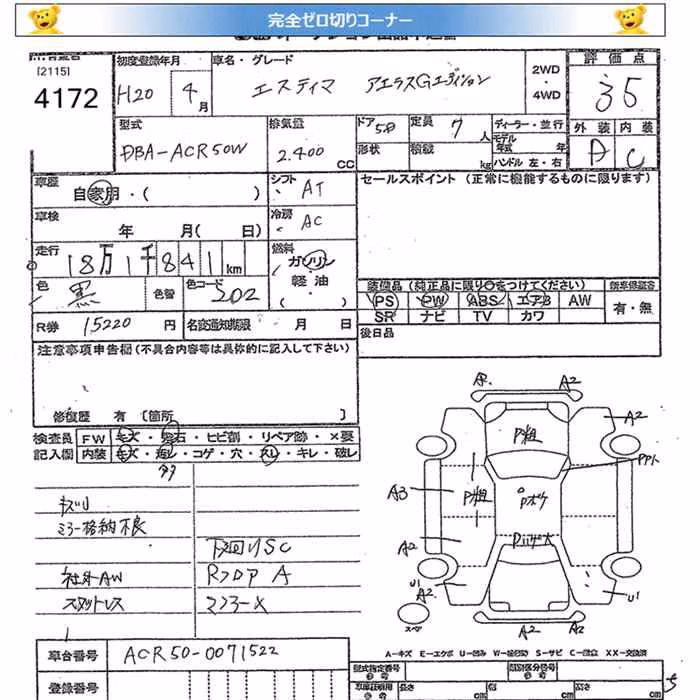 完全ゼロ切りコーナー
[2115]
4172
初度登録年月
H20 4月
車名・グレード
エスティマ アエラスGエディション
2WD
・
4WD
評価点
3.5
外装 内装
A C
型式
DBA-ACR50W
排気量
2.400 CC
ドア 5D
形状
定員 7人
積載 kg
ディーラー・並行
モデル年式 年
ハンドル 左・右
車歴 自家用・( )
シフト AT
セールスポイント (正常に機能するものに限ります)
車検 年 月( 日)
冷房 AC
走行 18万1千841km
燃料 ガソリン
軽油
・( )
色 黒 色替
色コード 202
装備品 (純正品に限り○をつけてください)
PS PW ABS エアB AW
SR ナビ TV カワ
有・無
R券 15220円
名変通知期限 月 日
後日品
注意事項申告欄(不具合内容等は具体的に記入して下さい)
修復歴 有 [箇所 ]
検査員 FW キズ・飛石・ヒビ割・リペア跡・×要
記入欄 内装 キズ・汚レ・コゲ・穴・スレ・キレ・破レ
ミラー格納不良
下回りSC
社外AW
RフロアA
スタットレス
マフラーX
A2
A2
P粗
PP1
A3
P粗
Pボケ
A2
U1
A2
U1
スペア
A2
A2
A-キズ E-エクボ U-凹み W-補修跡 S-サビ C-腐食 XX-交換済
車台番号 ACR50-0071522
登録番号
型式指定番号
類別区分番号
長さ cm
cm
cm